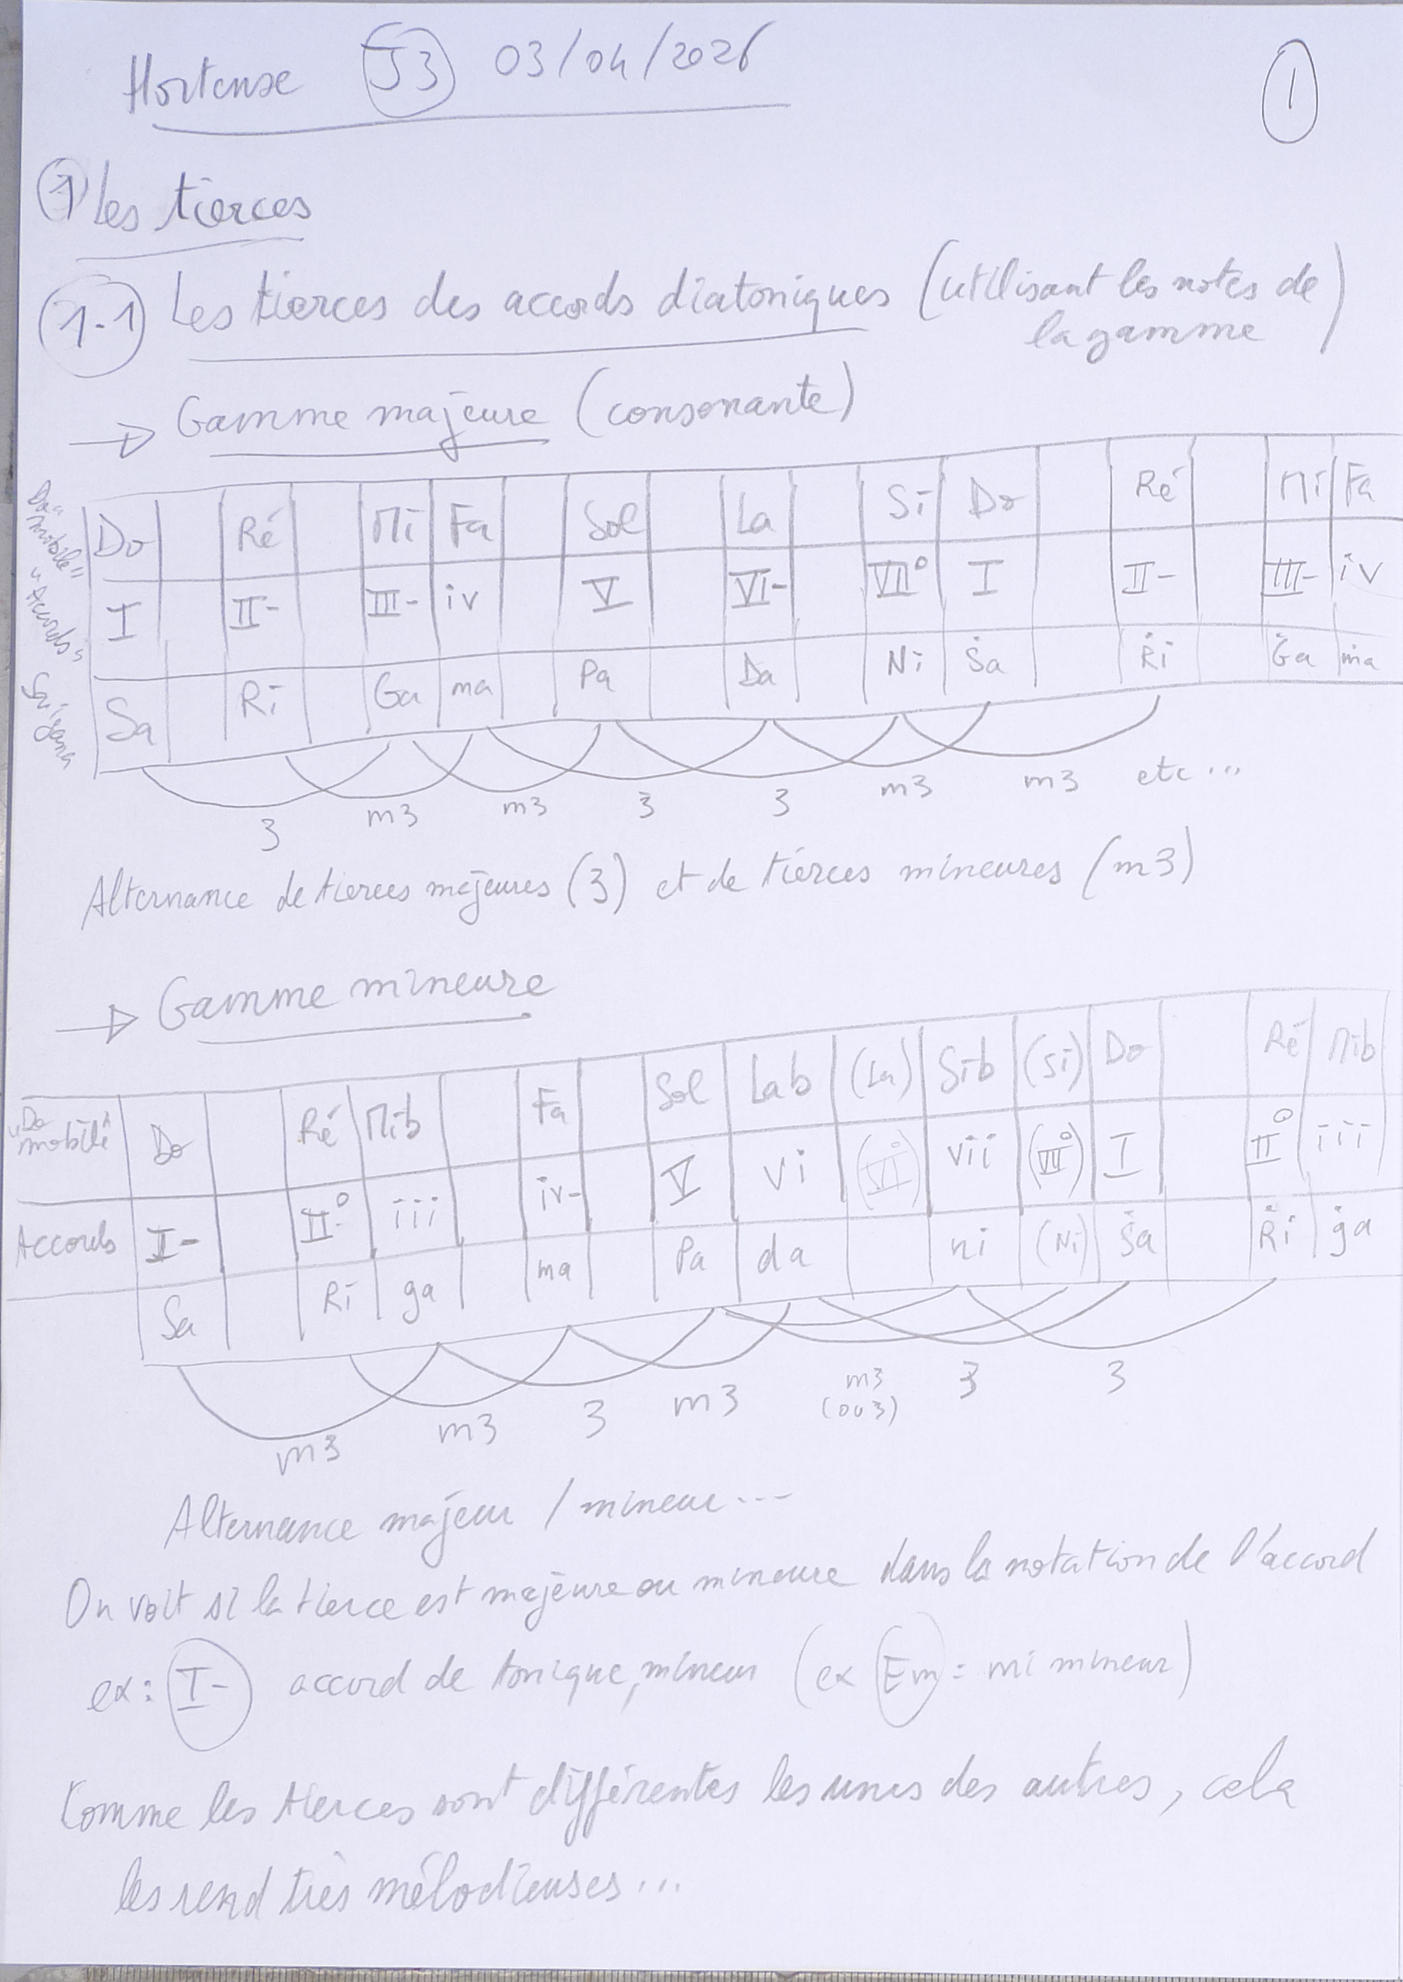 Hortense J3 03/04/2026
1
1 Les tierces
1-1 Les tierces des accords diatoniques (utilisant les notes de
la gamme)
→ Gamme majeure (consonante)
"Do mobile" Do Ré Mi Fa Sol La Si Do Ré Mi Fa
"Accords" I II- III- iv V VI- VII° I II- III- iv
Sargam Sa Ri Ga ma Pa Da Ni Ṡa Ṙi Ġa ṁa
3 m3 m3 3 3 m3 m3 etc...
Alternance de tierces majeures (3) et de tierces mineures (m3)
→ Gamme mineure
"Do mobile" Do Ré Mib Fa Sol Lab (La) Sib (Si) Do Ré Mib
Accords I- II-° iii iv- V vi (VI°) vii (VII°) I II° iii
Sa Ri ga ma Pa da ni (Ni) Ṡa Ṙi ġa
m3 m3 3 m3 m3 (ou 3) 3 3
Alternance majeur / mineur...
On voit si la tierce est majeure ou mineure dans la notation de l'accord
ex: I- accord de tonique, mineur (ex Em = mi mineur)
Comme les tierces sont différentes les unes des autres, cela
les rend très mélodieuses...